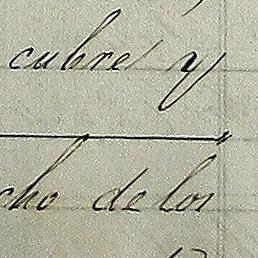 cubre y
cho de los